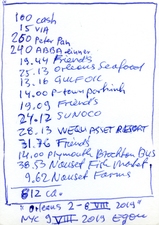 100 cash
15 VIA
260 Peter Pan
240 ABBA dinner
19.49 Friends
25.13 Orleans Seafood
13.16 GULF OIL
14.00 P-town
19.09 Friends
24.12 SUNOCO
28.13 RESORT
31.76 Friends
14.00 Plymouth Brockton Bus
38.53 Nauset Fish Market
9.62 Nauset Farms
812 ca.
Orleans 2-8 VIII 2019
NYC 9 VIII 2019